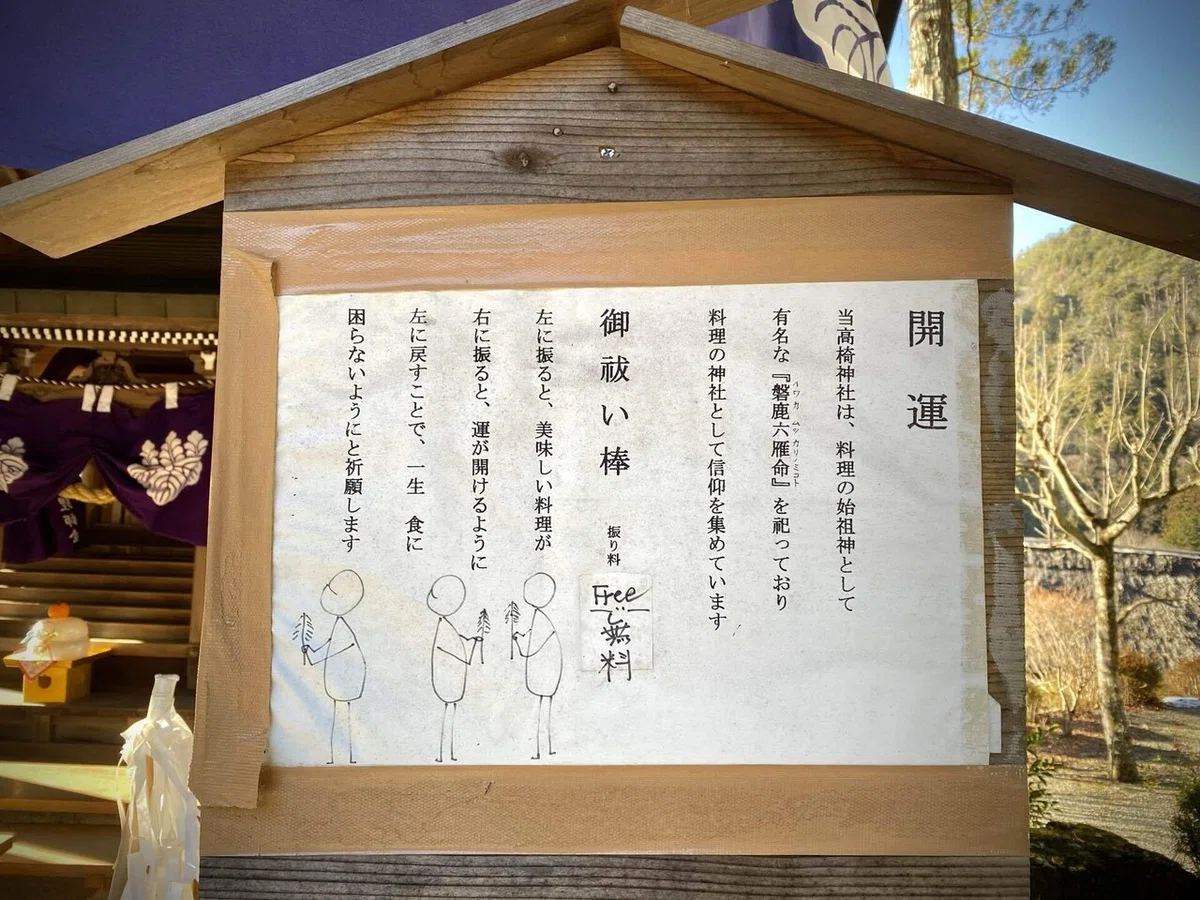 開運
当高椅神社は、料理の始祖神として
有名な『磐鹿六雁命』を祀っており
イワカ ムツ カリノミコト
料理の神社として信仰を集めています
御祓い棒 振り料
Free
で
無料
左に振ると、美味しい料理が
右に振ると、運が開けるように
左に戻すことで、一生 食に
困らないようにと祈願します